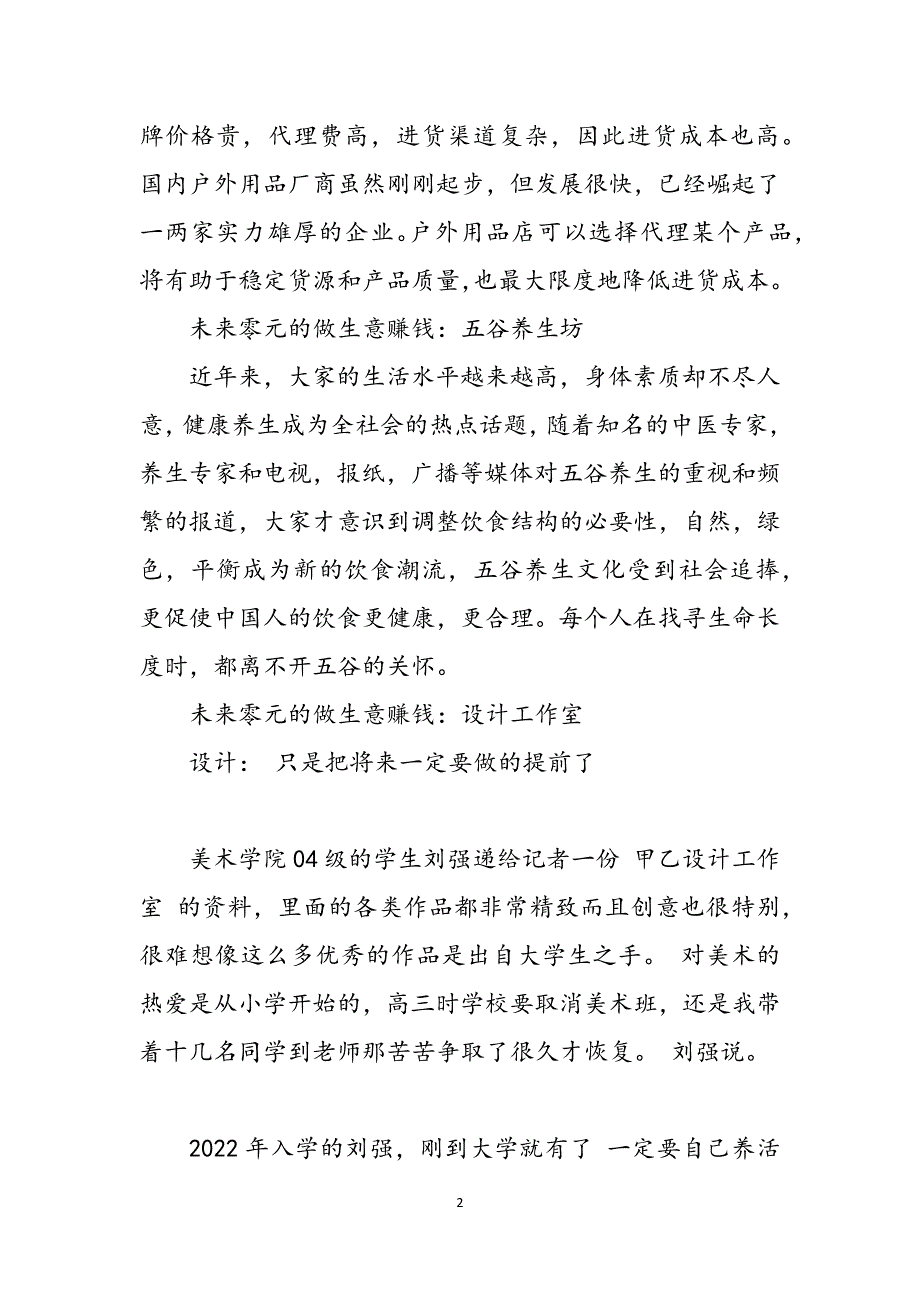 牌价格贵，代理费高，进货渠道复杂，因此进货成本也高。
国内户外用品厂商虽然刚刚起步，但发展很快，已经崛起了
一两家实力雄厚的企业。户外用品店可以选择代理某个产品，
将有助于稳定货源和产品质量，也最大限度地降低进货成本。
未来零元的做生意赚钱：五谷养生坊
近年来，大家的生活水平越来越高，身体素质却不尽人
意，健康养生成为全社会的热点话题，随着知名的中医专家，
养生专家和电视，报纸，广播等媒体对五谷养生的重视和频
繁的报道，大家才意识到调整饮食结构的必要性，自然，绿
色，平衡成为新的饮食潮流，五谷养生文化受到社会追捧，
更促使中国人的饮食更健康，更合理。每个人在找寻生命长
度时，都离不开五谷的关怀。
未来零元的做生意赚钱：设计工作室
设计： 只是把将来一定要做的提前了
美术学院 04 级的学生刘强递给记者一份 甲乙设计工作
室 的资料，里面的各类作品都非常精致而且创意也很特别，
很难想像这么多优秀的作品是出自大学生之手。 对美术的
热爱是从小学开始的，高三时学校要取消美术班，还是我带
着十几名同学到老师那苦苦争取了很久才恢复。 刘强说。
2022 年入学的刘强，刚到大学就有了 一定要自己养活
2